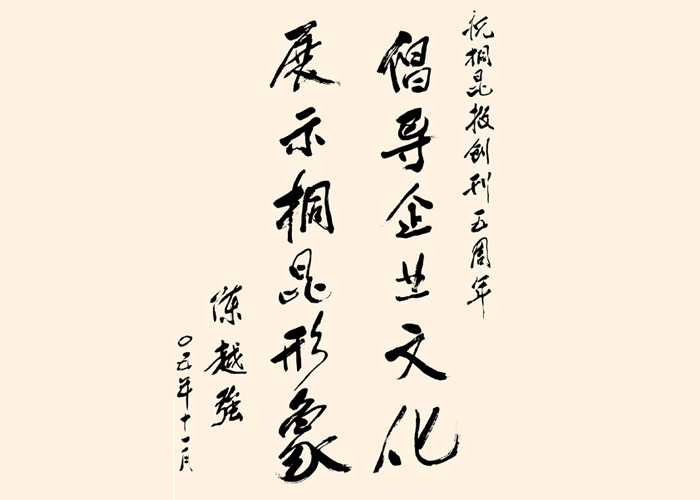 祝桐昆报创刊五周年
倡导企业文化
展示桐昆形象
陈越强
〇五年十一月